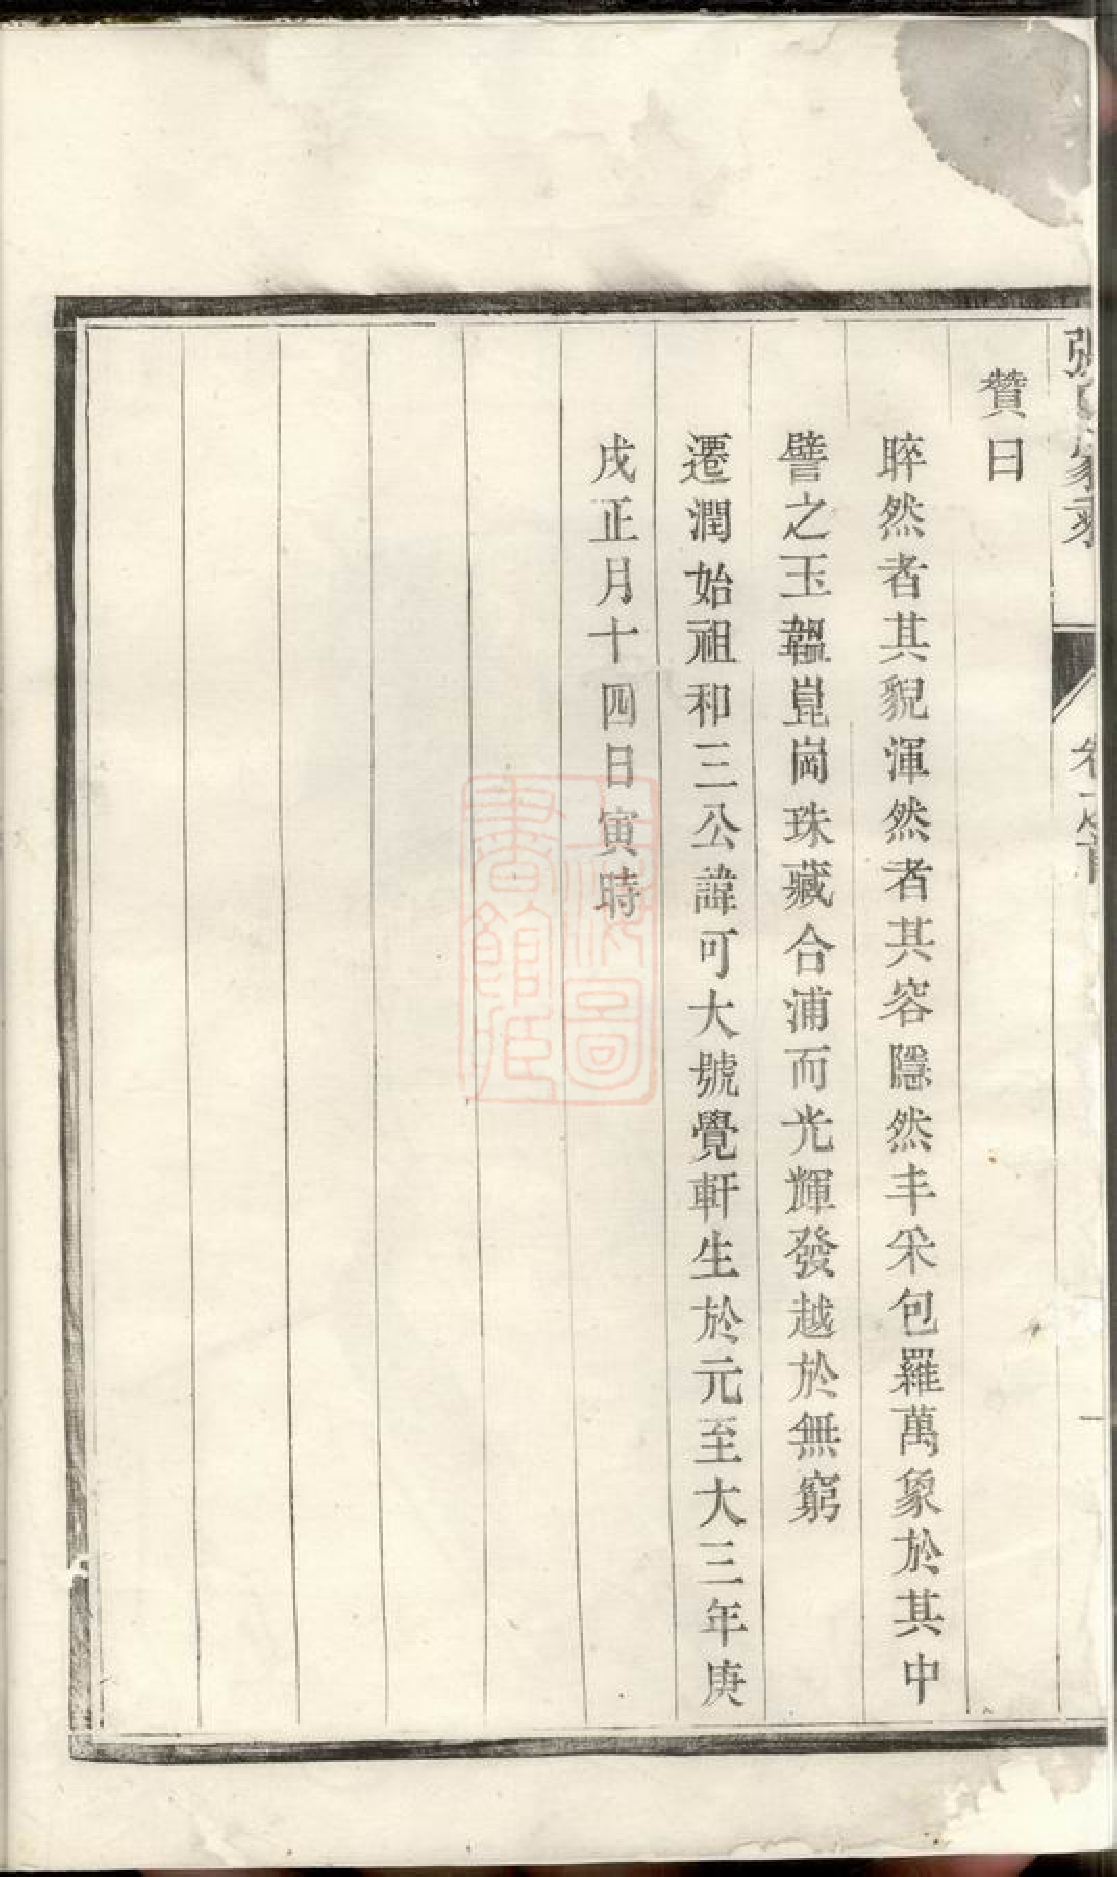 贊曰
睟然者其貌渾然者其容隱然丰采包羅萬象於其中
譬之玉韞崑崗珠藏合浦而光輝發越於無窮
遷潤始祖和三公諱可大號覺軒生於元至大三年庚
戌正月十四日寅時
上海圖
書館藏